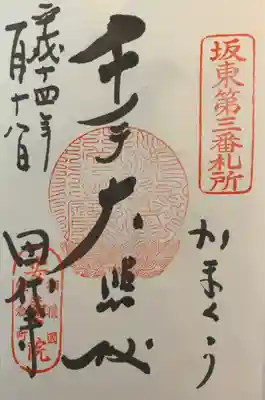 坂東第三番札所
かまくら
千手大悲
田代寺
安養院
平成十四年
月十八日